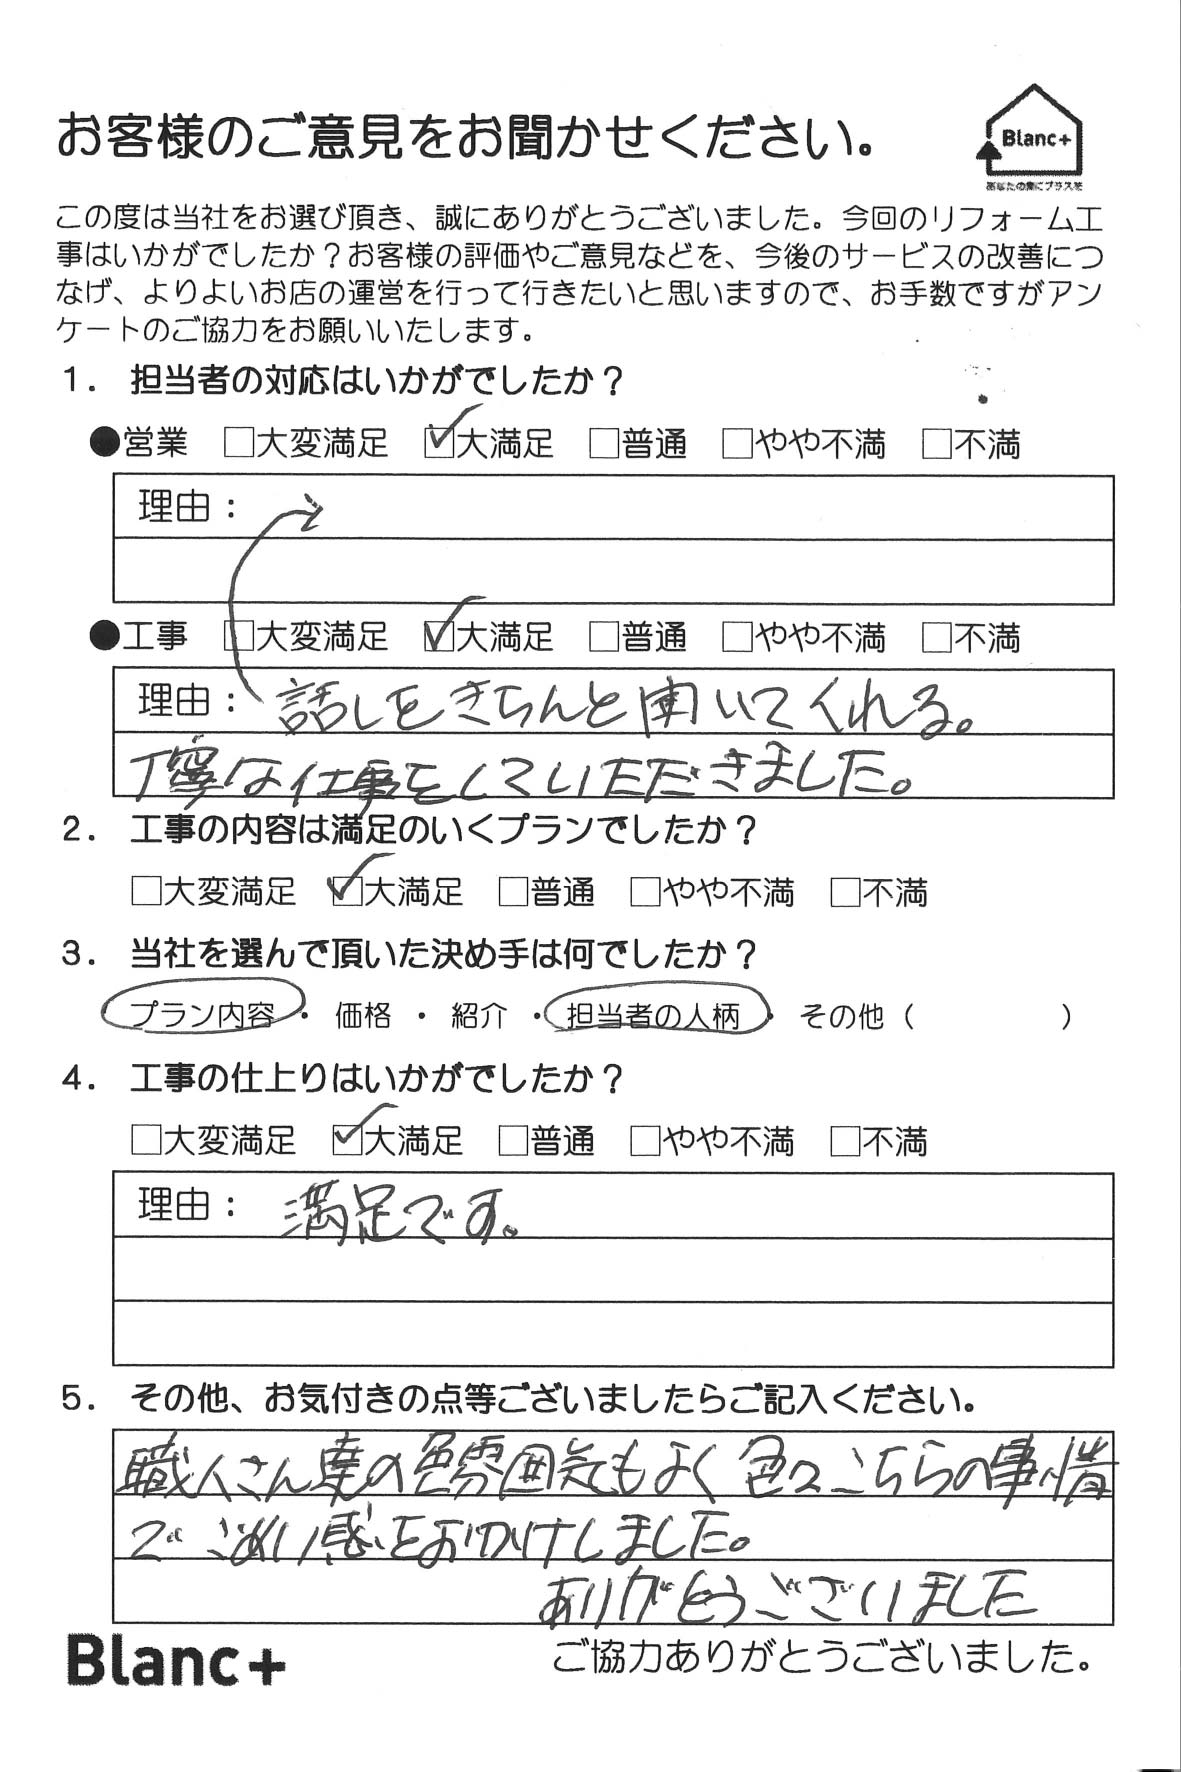 お客様のご意見をお聞かせください。
Blanc+
あなたの家にプラスを
この度は当社をお選び頂き、誠にありがとうございました。今回のリフォーム工
事はいかがでしたか？お客様の評価やご意見などを、今後のサービスの改善につ
なげ、よりよいお店の運営を行って行きたいと思いますので、お手数ですがアン
ケートのご協力をお願いいたします。
１．担当者の対応はいかがでしたか？
●営業 □大変満足 ☑大満足 □普通 □やや不満 □不満
理由：
●工事 □大変満足 ☑大満足 □普通 □やや不満 □不満
理由：話しをきちんと聞いてくれる。
丁寧な仕事をしていただきました。
２．工事の内容は満足のいくプランでしたか？
□大変満足 ☑大満足 □普通 □やや不満 □不満
３．当社を選んで頂いた決め手は何でしたか？
プラン内容・価格・紹介・担当者の人柄・その他（ ）
４．工事の仕上りはいかがでしたか？
□大変満足 ☑大満足 □普通 □やや不満 □不満
理由：満足です。
５．その他、お気付きの点等ございましたらご記入ください。
職人さん達の雰囲気もよく色々こちらの事情
でごめい感をおかけしました。
ありがとうございました
Blanc+
ご協力ありがとうございました。